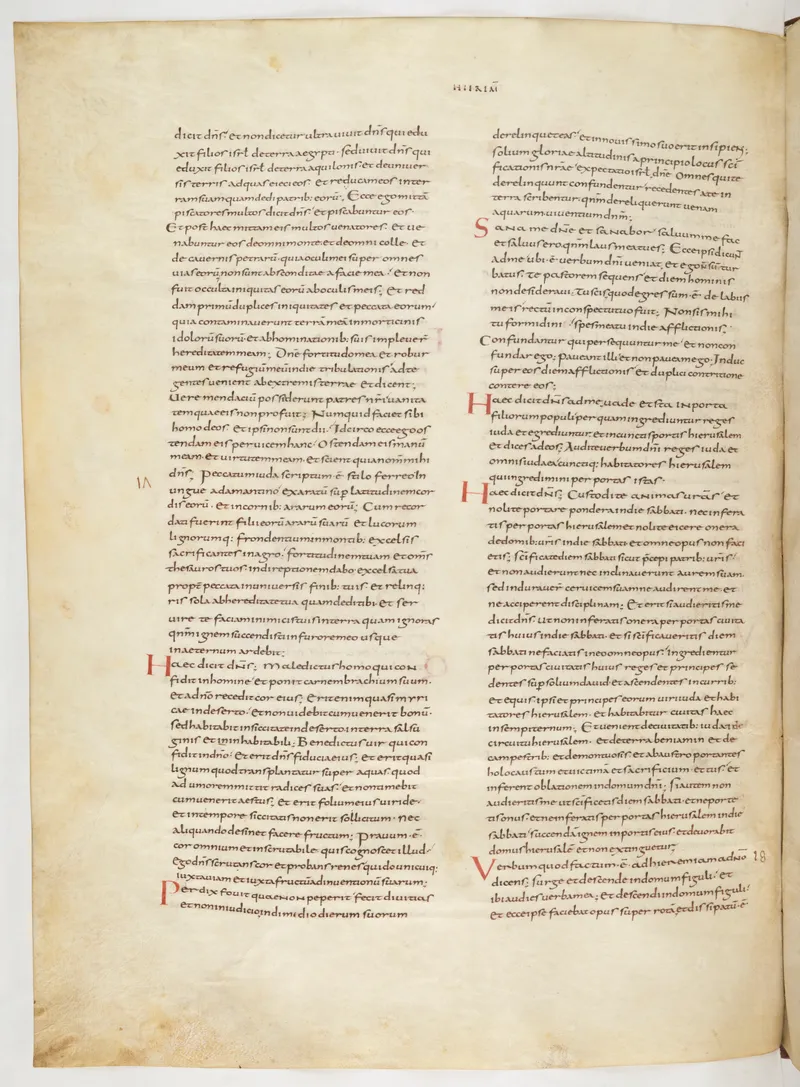 HIEREM̄
dicit dn̄s. et non dicetur ultra uiuit dn̄s qui edu
xit filios isrl̄ de terra aegypti. sed uiuit dn̄s qui
eduxit filios isrl̄ de terra aquilonis. et de uniuer
sis terris ad quas eieci eos. et reducam eos in ter
ram suam quam dedi patrib: eorū. Ecce ego mittā
piscatores multos dicit dn̄s. et piscabuntur eos.
Et post haec mittam eis multos uenatores. et ue
nabuntur eos de omni monte. et de omni colle. et
de cauernis petrarū. quia oculi mei super omnes
uias eorū non sunt absconditae a facie mea. et non
fuit occulta iniquitas eorū ab oculis meis; et red
dam primū duplices iniquitates et peccata eorum.
quia contaminauerunt terrā meā in morticinis
idolorū suorū. et abhominationib: suis impleuer̄
hereditatem meam; Dn̄e fortitudo mea et robur
meum et refugiū meū in die tribulationis. Ad te
gentes uenient ab extremis terrae et dicent;
Uere mendaciū possiderunt patres nr̄i uanita
tem quae eis non profuit; Numquid faciet sibi
homo deos. et ipsi non sunt dii. Idcirco ecce ego os
tendam eis per uicem hanc. Ostendam eis manū
meam. et uirtutem meam. et scient quia nom̄ mihi
dn̄s; Peccatum iuda scriptum ē. stilo ferreo in
ungue adamantino. exaratū sup latitudinem cor
dis eorū. et in cornib: ararum eorū; Cum recor
dati fuerint filii eorū ararū suarū et lucorum
lignorumq: frondentium in montib: excelsis
sacrificantes in agro. fortitudinem tuam et omēs
thesauros tuos in direptionem dabo. excelsa tua
propē peccata in uniuersis finib: tuis. et relinq:
ris sola ab hereditate tua quam dedi tibi. et ser
uire te faciam inimicis tuis in terra quam ignoras
qnm̄ ignem succendisti in furore meo usque
in aeternum ardebit;
Haec dicit dn̄s; Maledictus homo qui con
fidit in homine. et ponit carnem brachium suum.
et a dn̄o recedit cor eius; Erit enim quasi myri
cae in deserto. et non uidebit cum uenerit bonū.
sed habitabit in siccitate in deserto in terra salsu
ginis et inhabitabili; Benedictus uir qui con
fidit in dn̄o. et erit dn̄s fiducia eius; et erit quasi
lignum quod transplantatur super aquas quod
ad umorem mittit radices suas. et non timebit
cum uenerit aestus; et erit folium eius uiride.
et in tempore siccitatis non erit sollicitum. nec
aliquando desinet facere fructum; Prauum ē.
cor omnium et inscrutabile. quis cognoscet illud.
ego dn̄s scrutans cor et probans renes qui do unicuiq:
iuxta uiam et iuxta fructū adinuentionū suarum;
Perdix fouit quae non peperit. fecit diuitias
et non in iudicio. in dimidio dierum suorum
derelinquet eas. et in nouissimo suo erit insipiens;
solium gloriae altitudinis a principio locus sc̄i
ficationis nr̄ae. expectatio isrl̄ dn̄e. Omnes qui te
derelinquunt confundentur. recedentes a te in
terra scribentur. qnm̄ dereliquerunt uenam
aquarum uiuentium dnm̄;
Sana me dn̄e et sanabor. saluum me fac
et saluus ero. qnm̄ laus mea tu es; Ecce ipsi dicunt
ad me. ubi ē uerbum dn̄i ueniat. et ego nō sū tur
batus. te pastorem sequens. et diem hominis
non desideraui. tu scis. quod egressum ē. de labiis
meis rectū in conspectu tuo fuit; Non sis mihi
tu formidini. spes mea tu in die afflictionis;
Confundantur qui persequuntur me. et non con
fundar ego; paueant illi. et non paueam ego. Induc
super eos diem afflictionis. et duplici contritione
contere eos;
Haec dicit dn̄s ad me. uade et sta in porta
filiorum populi per quam ingrediuntur reges
iuda et egrediuntur. et in cunctis portis hierusalem
et dices ad eos; Audite uerbum dn̄i reges iuda et
omnis iudaea cunctiq: habitatores hierusalem
qui ingredimini per portas istas.
Haec dicit dn̄s; Custodite animas ur̄as. et
nolite portare pondera in die sabbati. nec infera
tis per portas hierusalem. et nolite eicere onera
de domib: ur̄is in die sabbati. et omne opus non faci
etis; sc̄ificate diem sabbati sicut p̄cepi patrib: ur̄is.
et non audierunt nec inclinauerunt aurem suam.
sed indurauer̄ ceruicem suam ne audirent me. et
ne acciperent disciplinam; Et erit si audieritis me
dicit dn̄s. ut non inferatis onera per portas ciuita
tis huius in die sabbati. et si sc̄ificaueritis diem
sabbati ne faciatis in eo omne opus. Ingredientur
per portas ciuitatis huius reges et principes se
dentes sup̄ solium dauid. et ascendentes in currib:
et equis. ipsi et principes eorum uir iuda et habi
tatores hierusalem. et habitabitur ciuitas haec
in sempiternum; Et uenient de ciuitatib: iuda et de
circuitu hierusalem. et de terra beniamin et de
campestrib: et de montuosis. et ab austro portantes
holocaustum et uictimā et sacrificium et tus. et
inferent oblationem in domum dn̄i; Si autem non
audieritis me ut sc̄ificetis diem sabbati. et ne porte
tis onus. et ne inferatis per portas hierusalem in die
sabbati. succendā ignem in portis eius. et deuorabit
domus hierusalē et non extinguetur;
Verbum quod factum ē. ad hieremiam a dn̄o 18
dicens. surge et descende in domum figuli. et
ibi audies uerba mea; et descendi in domum figuli.
et ecce ipse faciebat opus super rotā. et dissipatū ē